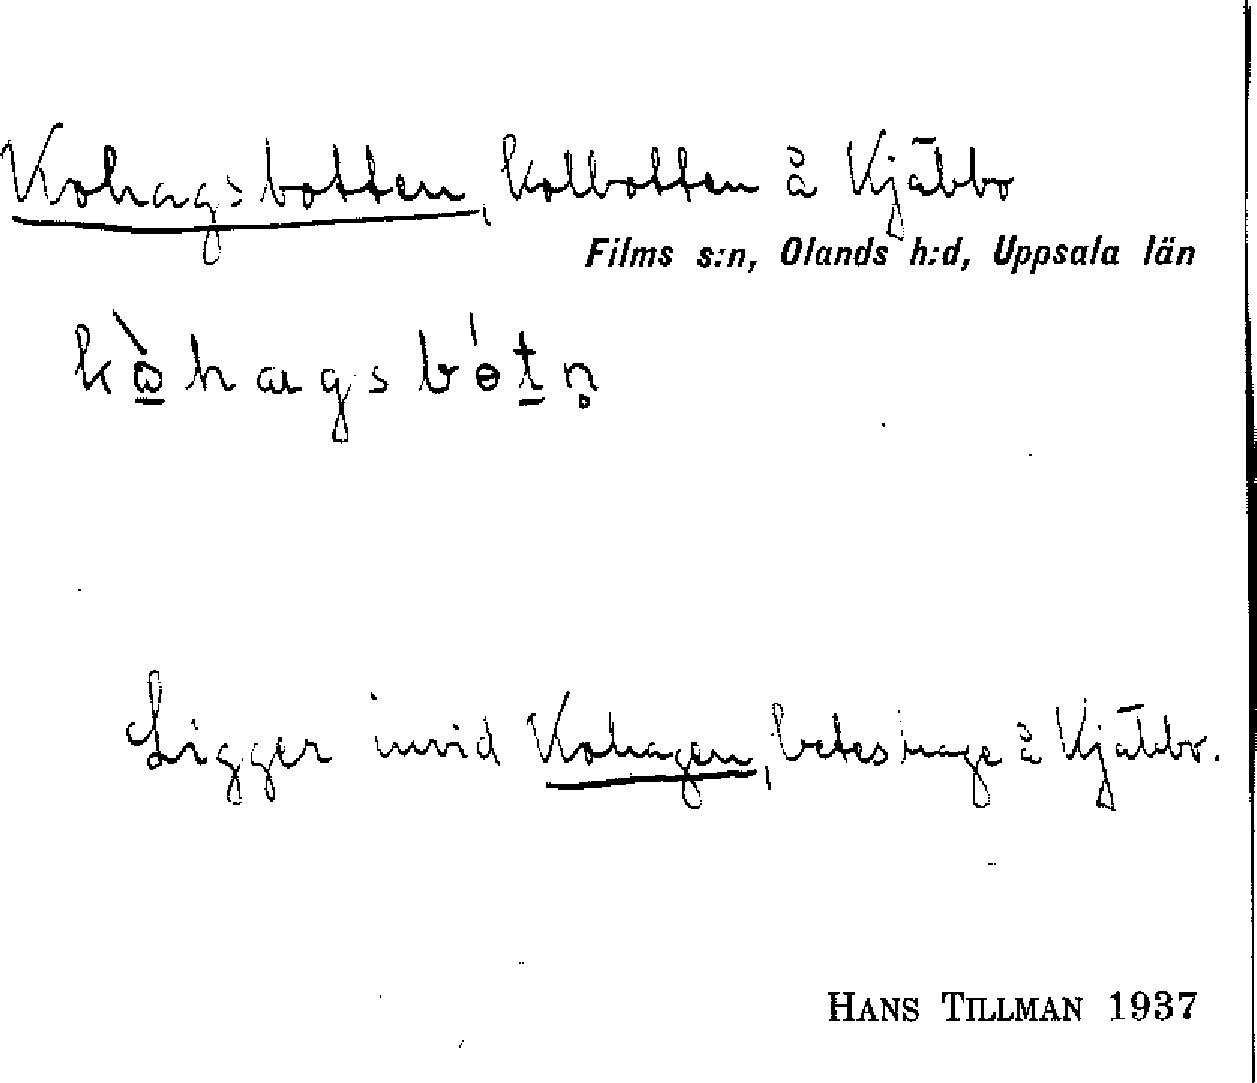 Kohagsbotten, kolbotten å Kjäbbo
Films s:n, Olands h:d, Uppsala län
kòhagsbótn̥
Ligger invid Kohagen, beteshage å Kjäbbo.
HANS TILLMAN 1937